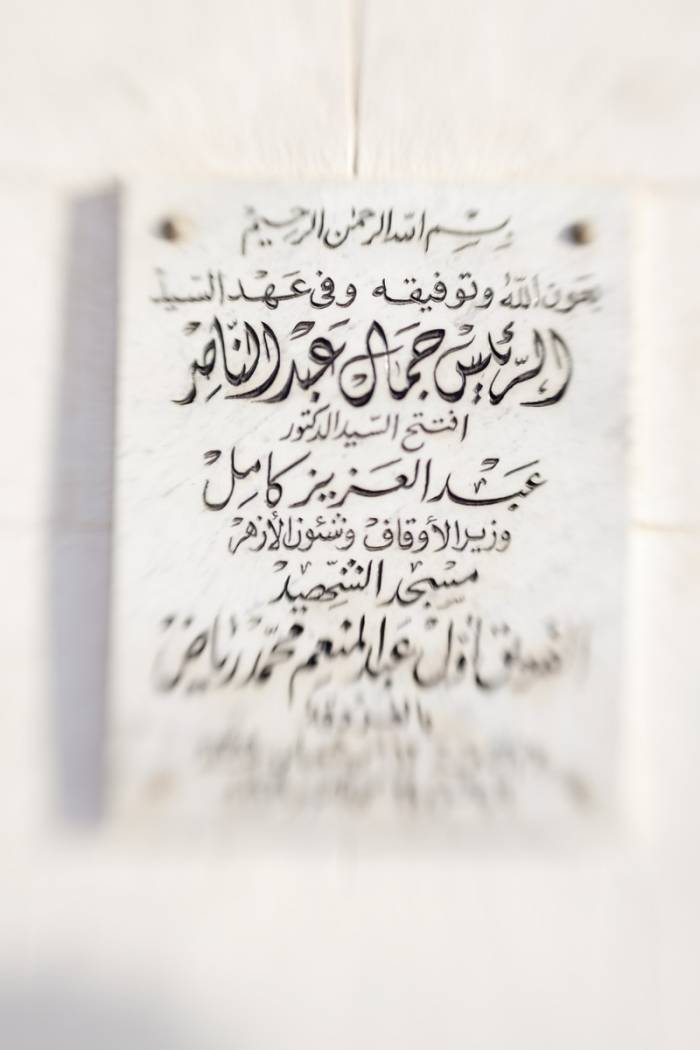 بِسْمِ اللهِ الرحمٰن الرحيم
بعون اللّٰهُ وتوفيقه وفى عَهْد السّيد
الرّئيسْ جمَال عَبْد النّاصِرْ
افتتح السّيد الدكتور
عبْد العَزيز كامِلْ
وزير الأوقافْ وشئون الأزهرْ
مسْجد الشّهيدْ
الفريق أوّلْ عبد المنعم محمّد رياضْ